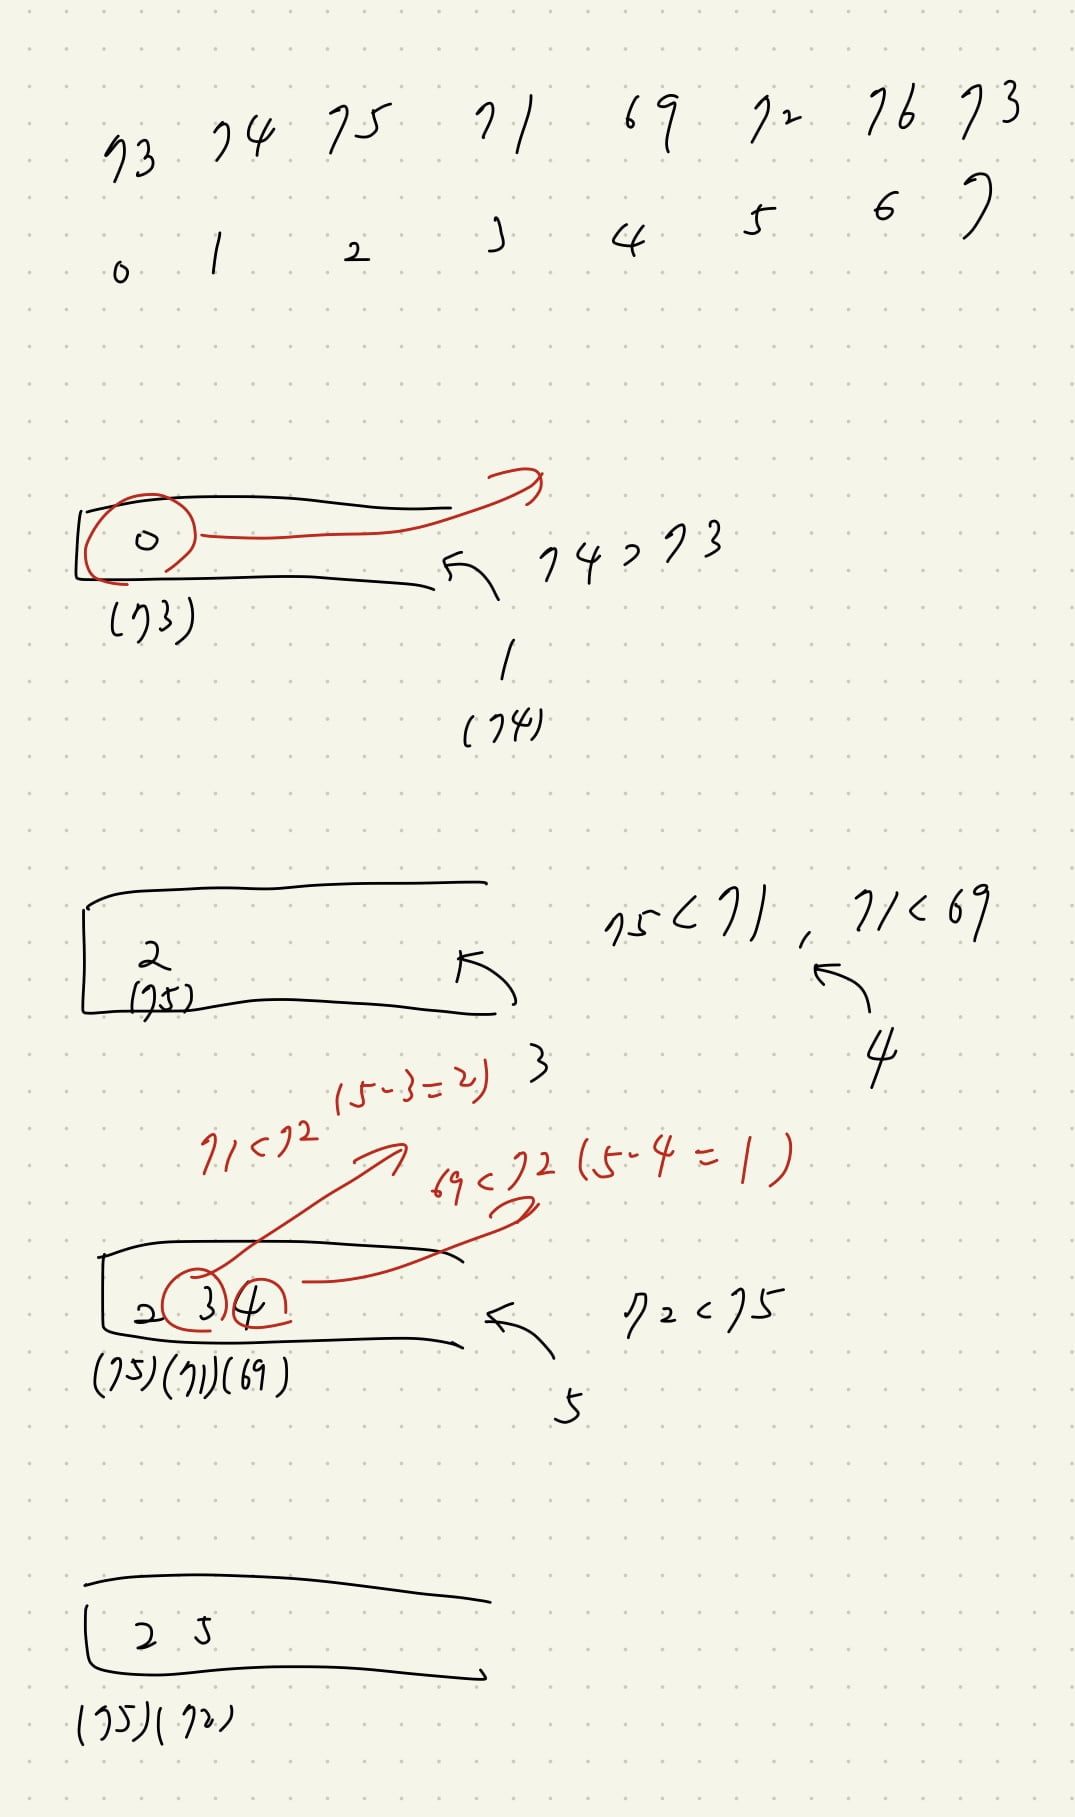 73 74 75 71 69 72 76 73
0 1 2 3 4 5 6 7
0 74 > 73
(73)
1
(74)
75 < 71 , 71 < 69
2
(75)
3 4
71 < 72 (5-3=2)
69 < 72 (5-4=1)
2 3 4 72 < 75
(75)(71)(69)
5
2 5
(75)(72)